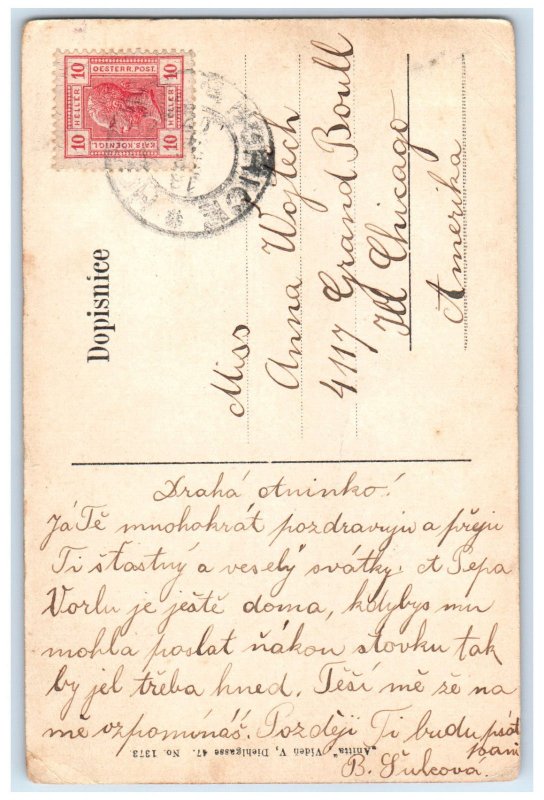 10
OESTERR. POST.
10
HELLER
HELLER
10
KAIS. KOENIGL.
10
Dopisnice
Miss
Anna Vojtech
4117 Grand Boull
Ill Chicago
Amerika
Drahá Aninko!
Já Tě mnohokrát pozdravuju a přeju
Ti šťastný a veselý svátky. A Pepa
Vorlu je ještě doma, kdybys mu
mohla poslat ňákou slovku tak
by jel třeba hned. Těší mě že na
mě vzpomínáš. Později Ti budu psát
B. Šulcová.
"Anitta" Vídeň V, Diehlgasse 47. No. 1373